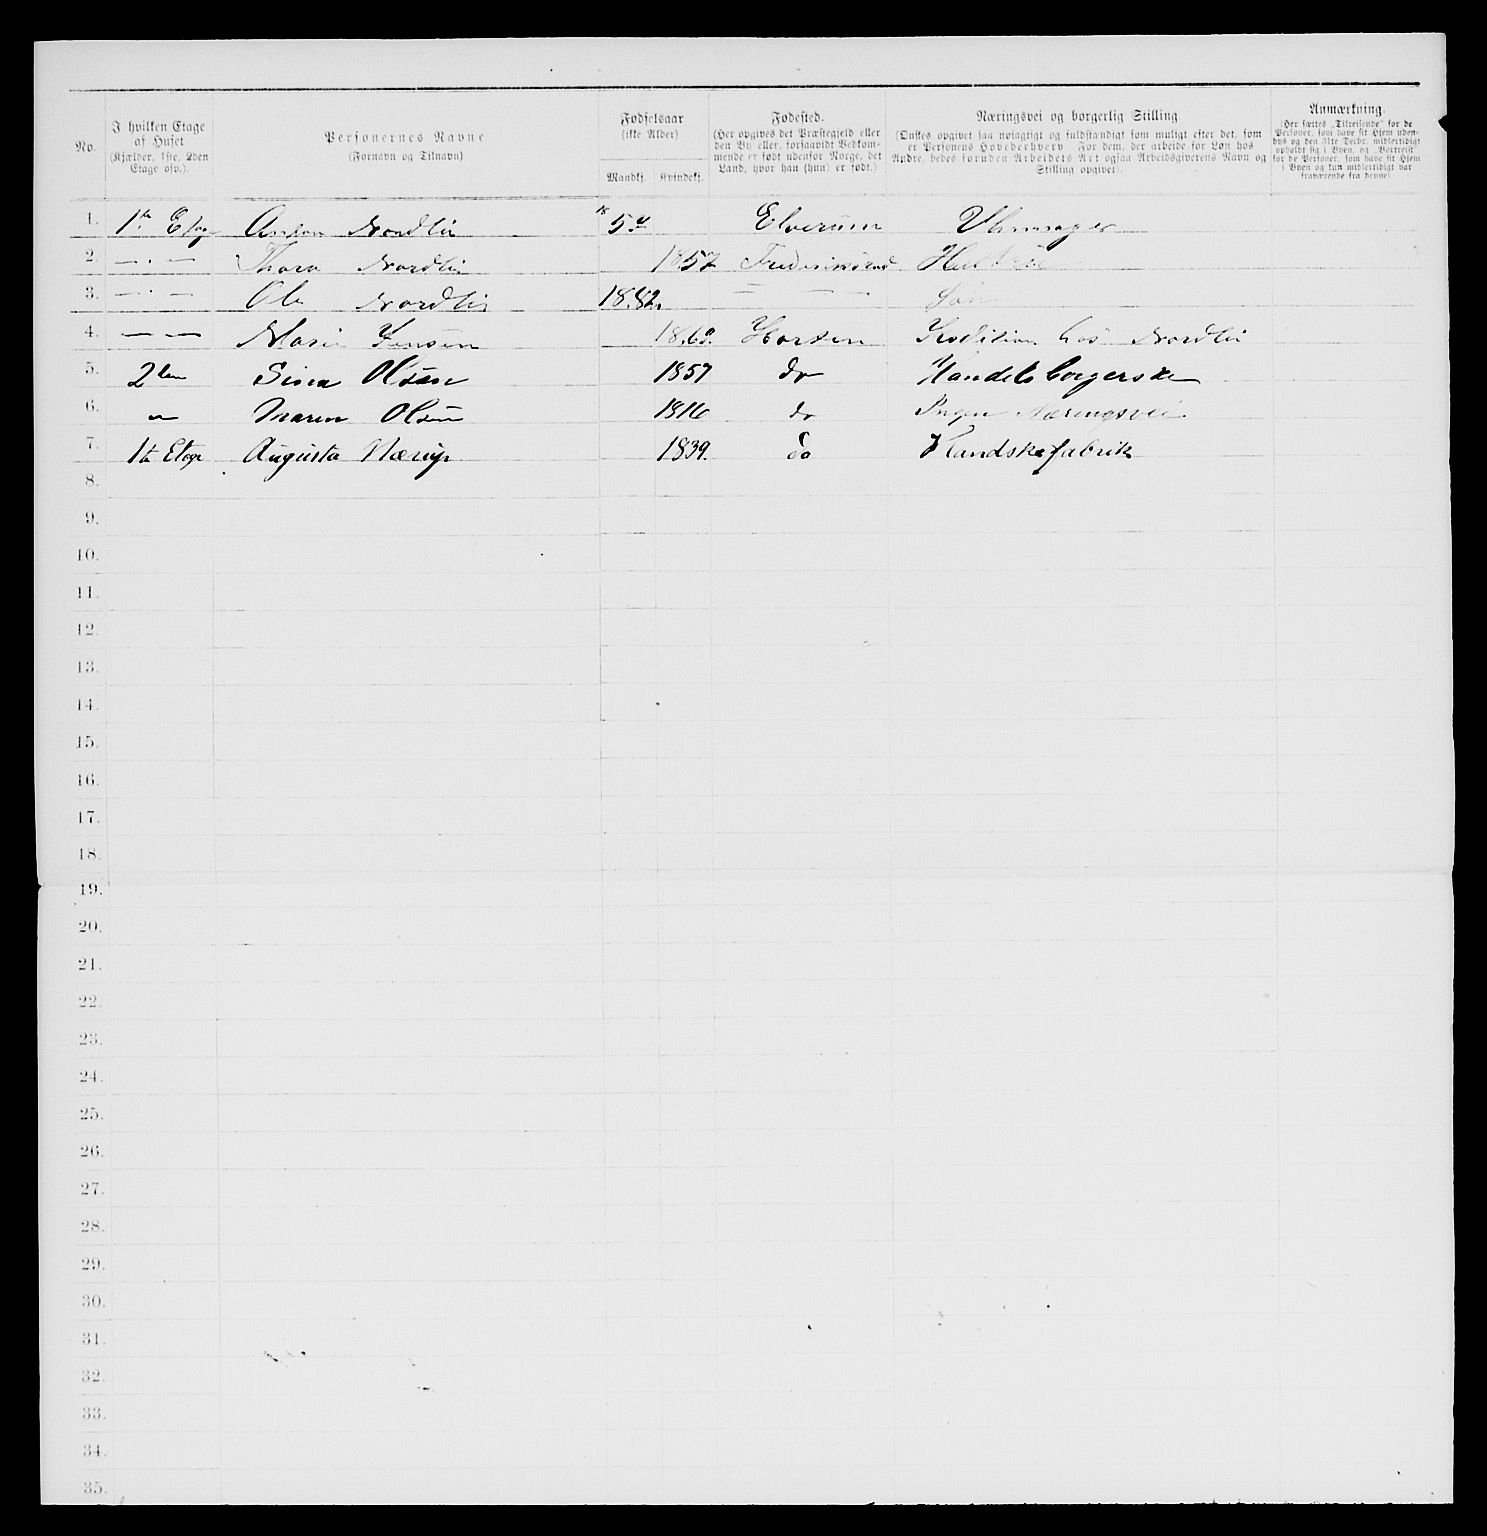 No.
I hvilken Etage
af Huset
(Kjælder, 1ste, 2den
Etage osv.).
Personernes Navne
(Fornavn og Tilnavn)
Fødselsaar
(ikke Alder)
Mandkj.
Kvindekj.
Fødested.
(Her opgives det Præstegjeld eller
den By eller, forsaavidt Vedkom-
mende er født udenfor Norge, det
Land, hvor han (hun) er født.)
Næringsvei og borgerlig Stilling
(Ønskes opgivet saa nøiagtigt og fuldstændigt som muligt efter det, som
er Personens Hovederhverv. For dem, der arbeide for Løn hos
Andre, bedes foruden Arbeidets Art ogsaa Arbeidsgiverens Navn og
Stilling opgivet).
Anmærkning.
(Her sættes „Tilreisende" for de
Personer, som have sit Hjem uden-
bys og den 31te Decbr. midlertidigt
opholdt sig i Byen, og „Bortreist"
for de Personer, som have sit Hjem
i Byen og kun midlertidigt var
fraværende fra denne).
1. 1te Etage Anton Nordlie 18 Elverum Uhrmager
2. — . — Thora Nordlie 1857 Frederikstad
3. — . — Ole Nordlie 1882. — — Søn
4. — — Marie Jensen Horten hos Nordlie
5. 2den Sina Olsen 1857 do Handelsborgerske
6. " Maren Olsen 1816 do Ingen Næringsvei
7. 1te Etage Augusta Nærup 1839. do Handskefabrik
8.
9.
10.
11.
12.
13.
14.
15.
16.
17.
18.
19.
20.
21.
22.
23.
24.
25.
26.
27.
28.
29.
30.
31.
32.
33.
34.
35.